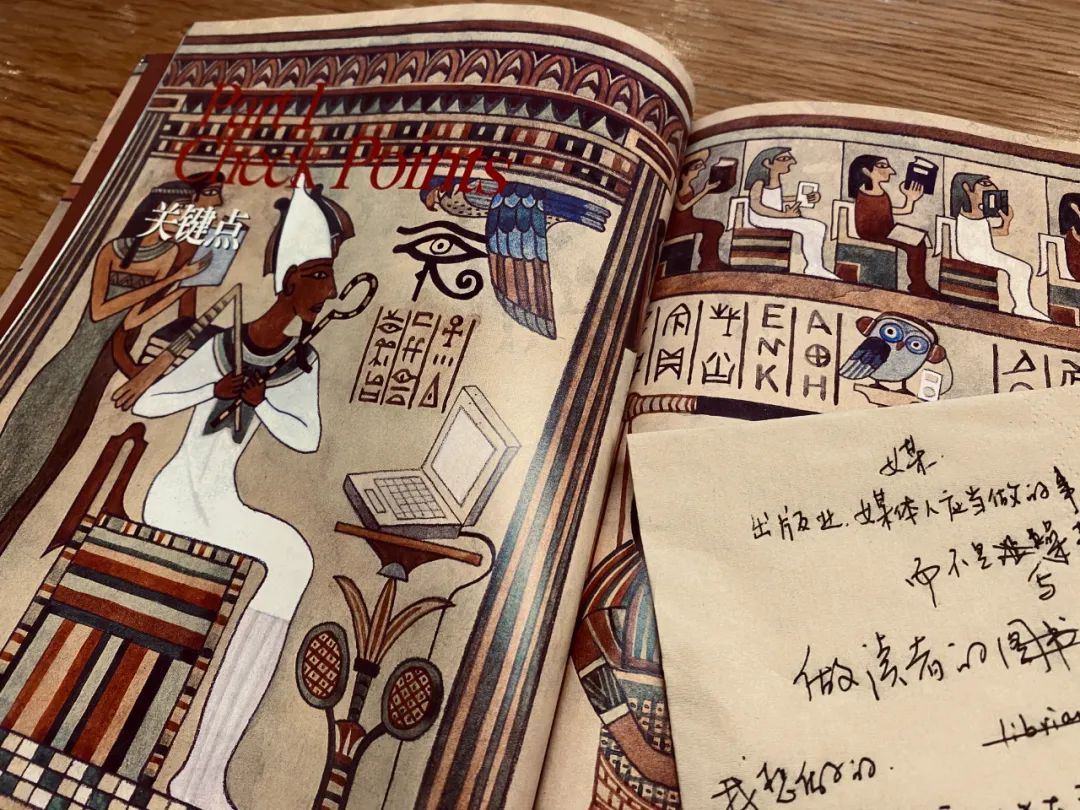 Part 1
Check Points
关键点
E A
N
K H
媒
出版业、媒体人应当做的事
而不是
与
做读者的图书
librian
我想做的